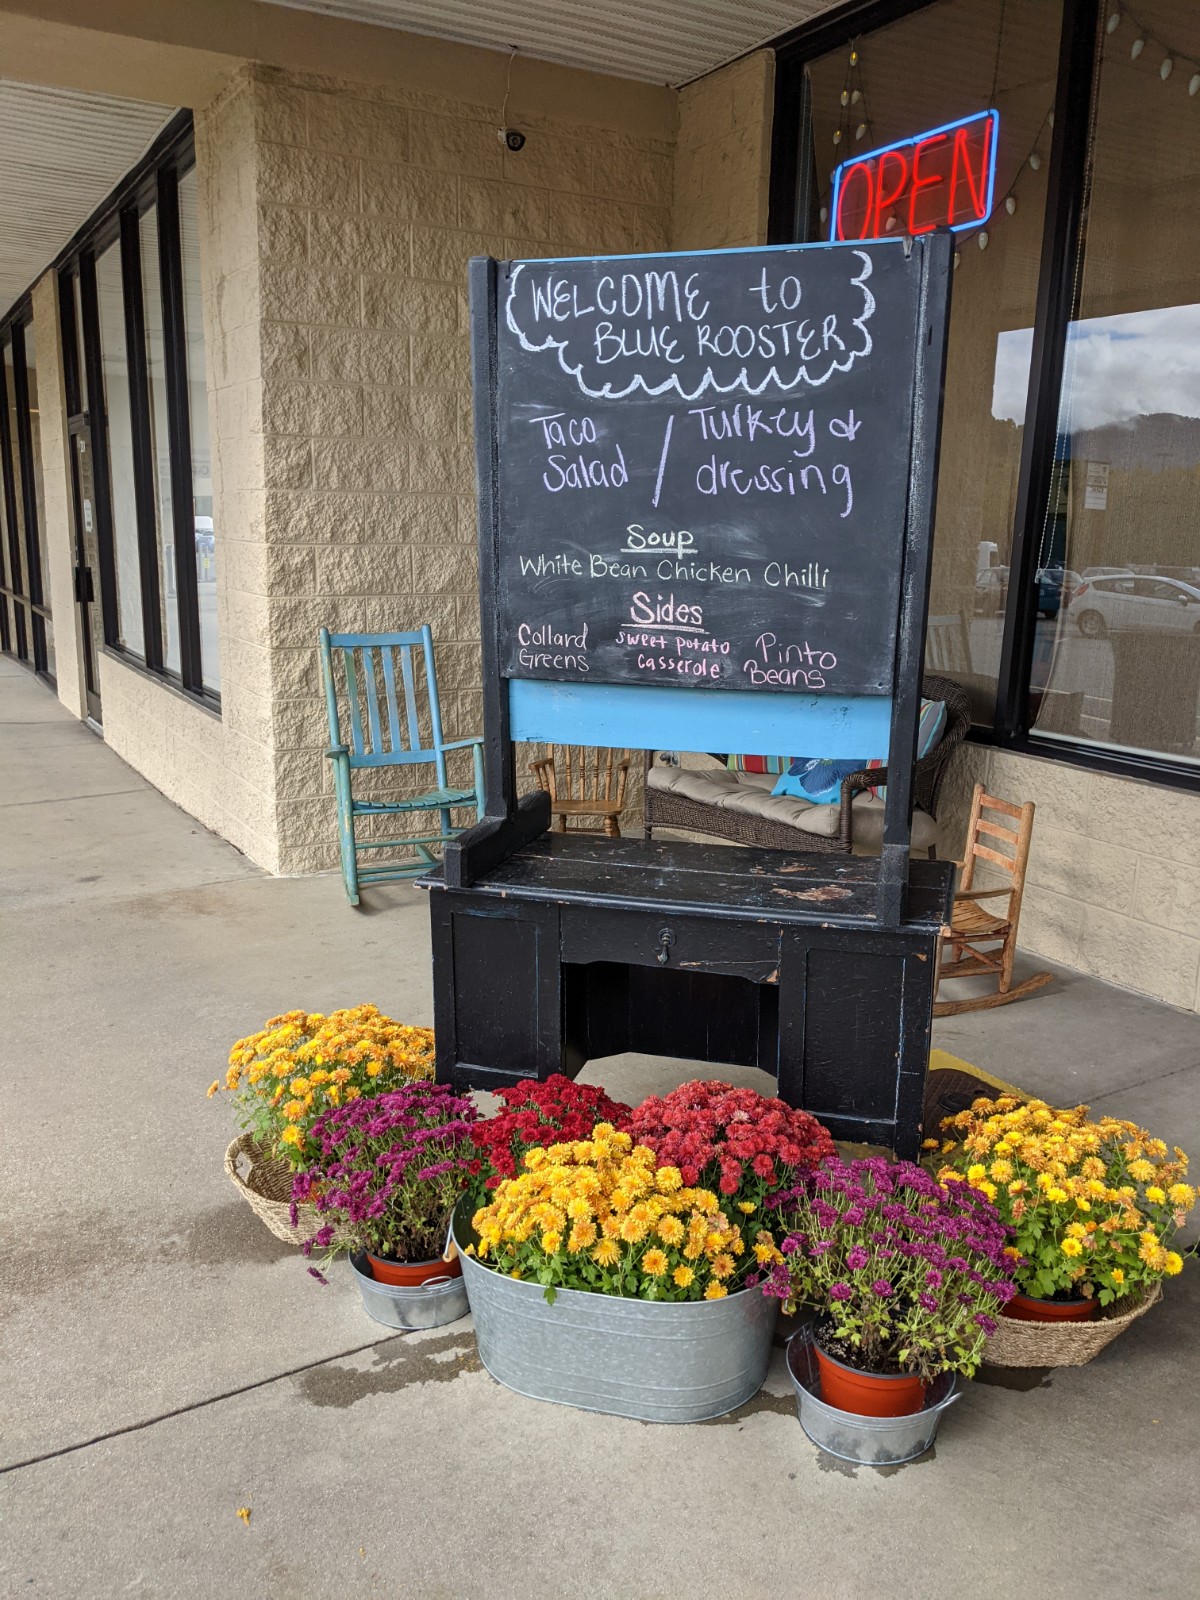 OPEN
WELCOME to
BLUE ROOSTER
Taco
Salad
/
Turkey &
dressing
Soup
White Bean Chicken Chilli
Sides
Collard
Greens
sweet potato
casserole
Pinto
Beans